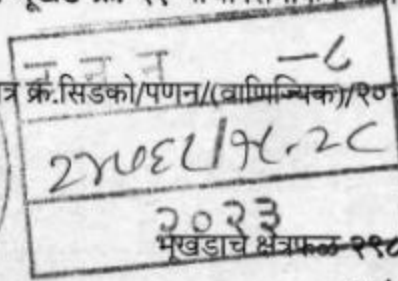 न न न — ८
त्र क्र.सिडको/पणन/(वाणिज्यिक)/२०
२४७६८/१५.२८
२०२३
भूखंडाचे क्षेत्रफळ २९८